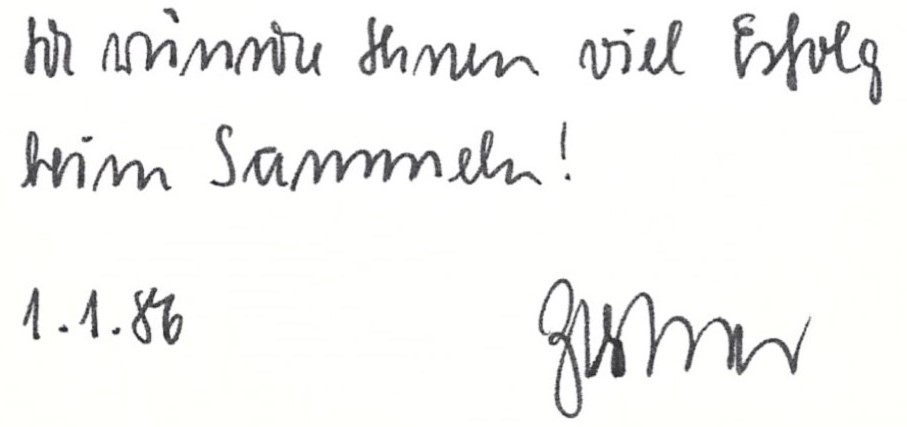 wünsche Ihnen viel Erfolg
beim Sammeln!
1.1.86